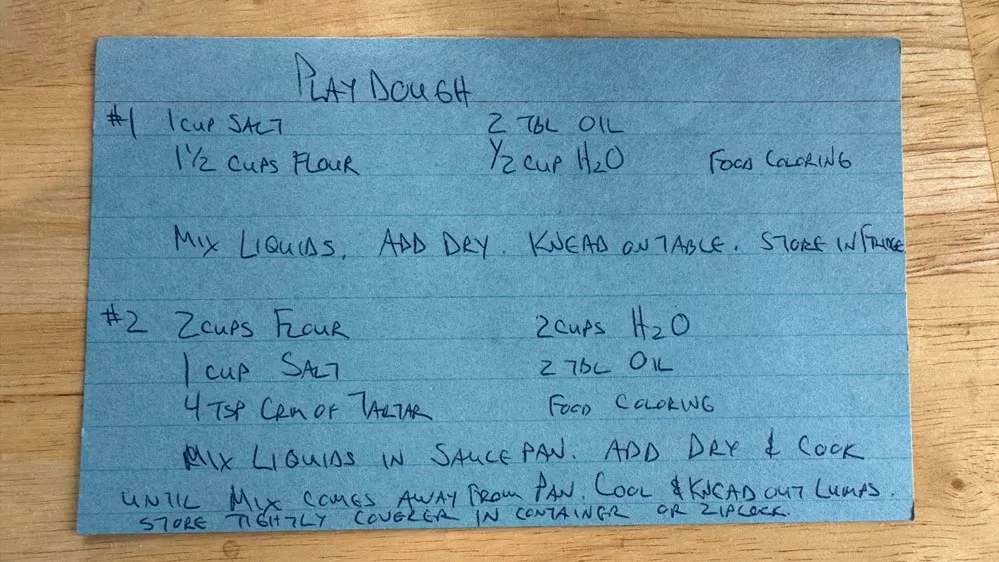 PLAY DOUGH
#1 1 CUP SALT 2 TBL OIL
1 1/2 CUPS FLOUR 1/2 CUP H2O FOOD COLORING
MIX LIQUIDS. ADD DRY. KNEAD ON TABLE. STORE IN FRIDGE
#2 2 CUPS FLOUR 2 CUPS H2O
1 CUP SALT 2 TBL OIL
4 TSP CRM OF TARTAR FOOD COLORING
MIX LIQUIDS IN SAUCE PAN. ADD DRY & COOK
UNTIL MIX COMES AWAY FROM PAN. COOL & KNEAD OUT LUMPS.
STORE TIGHTLY COVERER IN CONTAINER OR ZIPLOCK.